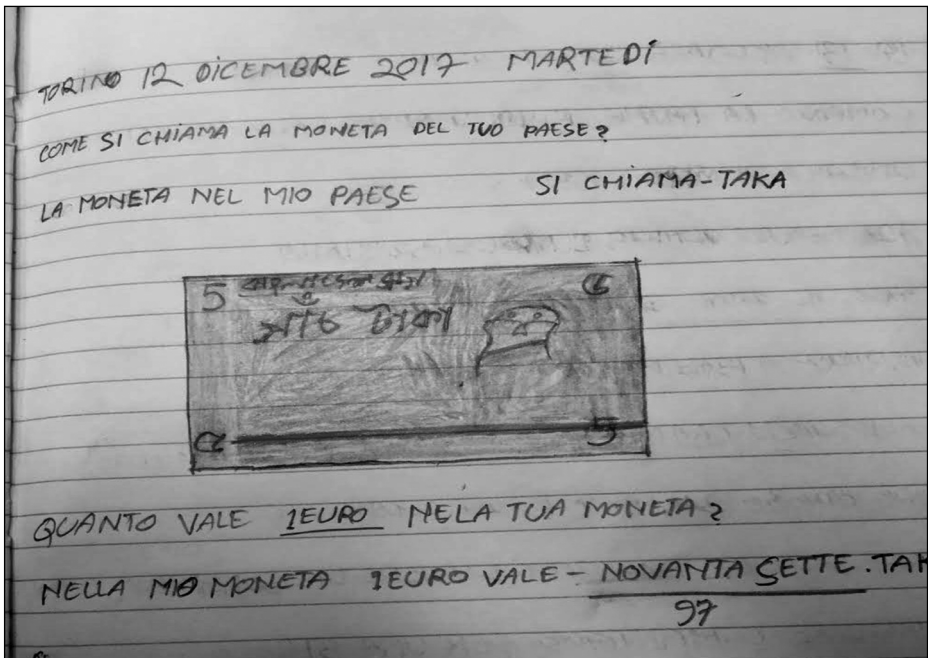 TORINO 12 DICEMBRE 2017 MARTEDÍ
COME SI CHIAMA LA MONETA DEL TUO PAESE?
LA MONETA NEL MIO PAESE SI CHIAMA-TAKA
5
5
QUANTO VALE 1EURO NELA TUA MONETA?
NELLA MIO MONETA 1EURO VALE - NOVANTA SETTE.TAK
97